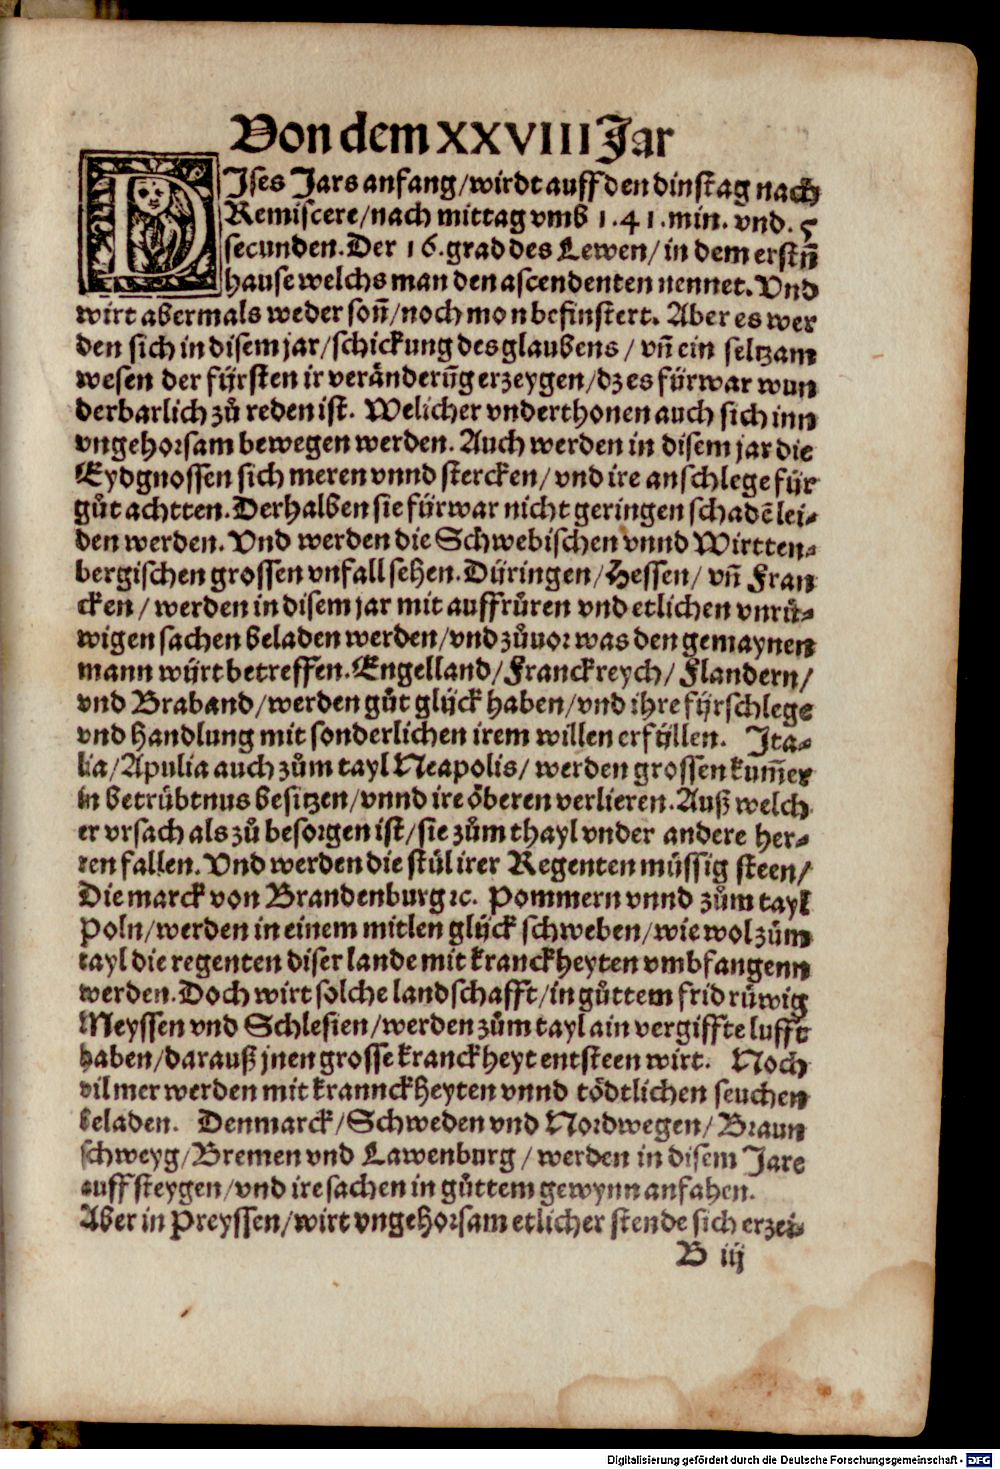 Von dem XXVIII Jar
DIses Jars anfang/wirdt auff den dinstag nach
Remiscere/nach mittag vmb 1.41.min. vnd.5
secunden.Der 16.grad des Lewen/in dem erstñ
hause welchs man den ascendenten nennet.Vnd
wirt abermals weder soñ/noch mon befinstert. Aber es wer
den sich in disem jar/schickung des glaubens/vñ ein seltzam
wesen der fürsten ir veränderũg erzeygen/dz es fürwar wun
derbarlich zů reden ist. Welicher vnderthonen auch sich inn
vngehorsam bewegen werden. Auch werden in disem jar die
Eydgnossen sich meren vnnd stercken/vnd ire anschlege für
gůt achtten.Derhalben sie fürwar nicht geringen schadẽ lei-
den werden. Vnd werden die Schwebischen vnnd Wirtten-
bergischen grossen vnfall sehen.Düringen/Hessen/vñ Fran
cken/werden in disem jar mit auffrůren vnd etlichen vnrů-
wigen sachen beladen werden/vnd zůuor was den gemaynen
mann würt betreffen.Engelland/Franckreych/Flandern/
vnd Braband/werden gůt glück haben/vnd ihre fürschlege
vnd handlung mit sonderlichen irem willen erfüllen. Ita-
lia/Apulia auch zům tayl Neapolis/werden grossen kum̃er
in betrübtnus besitzen/vnnd ire öberen verlieren.Auß welch
er vrsach als zů besorgen ist/sie zům thayl vnder andere her-
ren fallen. Vnd werden die stül irer Regenten müssig steen/
Die marck von Brandenburg ꝛc. Pommern vnnd zům tayl
Poln/werden in einem mitlen glück schweben/wie wol zům
tayl die regenten diser lande mit kranckheyten vmbfangenn
werden.Doch wirt solche landschafft/in gůttem frid růwig
Meyssen vnd Schlesien/werden zům tayl ain vergiffte lufft
haben/darauß jnen grosse kranckheyt entsteen wirt. Noch
vil mer werden mit krannckheyten vnnd tödtlichen seuchen
beladen. Denmarck/Schweden vnd Nordwegen/Braun
schweyg/Bremen vnd Lawenburg/werden in disem Jare
auffsteygen/vnd ire sachen in gůttem gewynn anfahen.
Aber in Preyssen/wirt vngehorsam etlicher stende sich erzei-
B iij
Digitalisierung gefördert durch die Deutsche Forschungsgemeinschaft - DFG